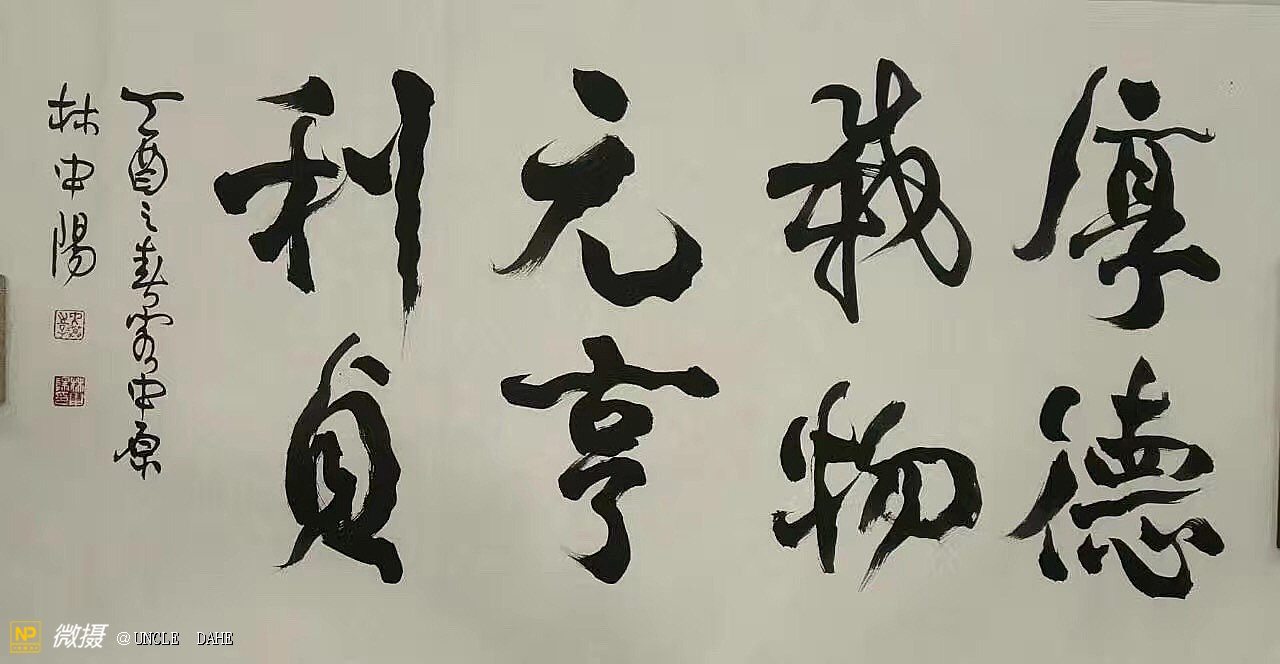 厚德
载物
元亨
利贞
丁酉之春客中原
林中阳
NP 微摄 @UNCLE DAHE